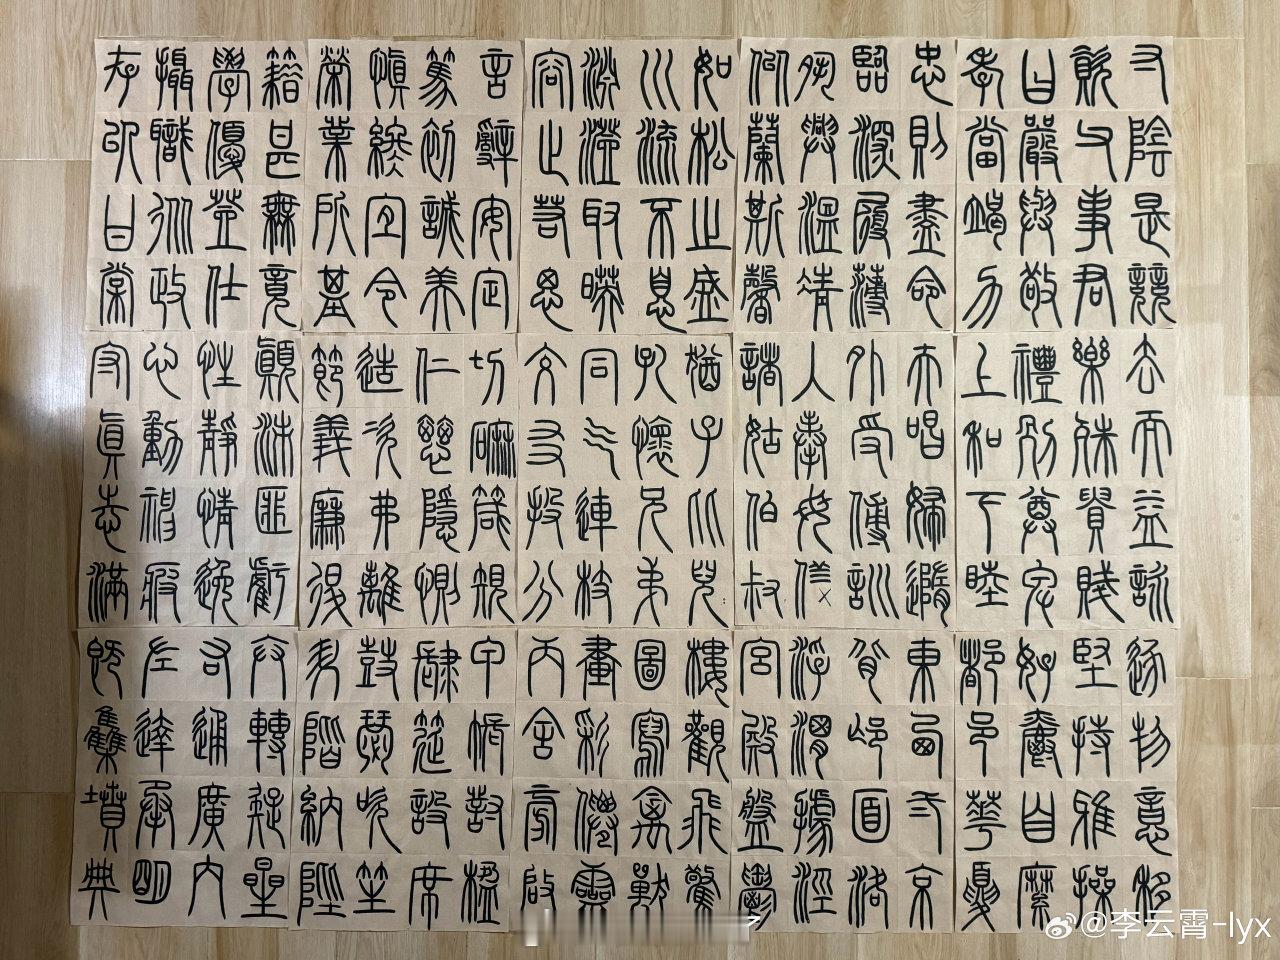 寸陰是競
資父事君
曰嚴與敬
孝當竭力
忠則盡命
臨深履薄
夙興溫凊
似蘭斯馨
如松之盛
川流不息
淵澄取映
容止若思
言辭安定
篤初誠美
慎終宜令
榮業所基
籍甚無竟
學優登仕
攝職從政
存以甘棠
去而益詠
樂殊貴賤
禮別尊卑
上和下睦
夫唱婦隨
外受傅訓
入奉母儀
諸姑伯叔
猶子比兒
孔懷兄弟
同氣連枝
交友投分
切磨箴規
仁慈隱惻
造次弗離
節義廉退
顛沛匪虧
性靜情逸
心動神疲
守真志滿
逐物意移
堅持雅操
好爵自縻
都邑華夏
東西二京
背邙面洛
浮渭據涇
宮殿盤鬱
樓觀飛驚
圖寫禽獸
畫彩仙靈
丙舍傍啟
甲帳對楹
肆筵設席
鼓瑟吹笙
升階納陛
弁轉疑星
右通廣內
左達承明
既集墳典
@李云霄-lyx